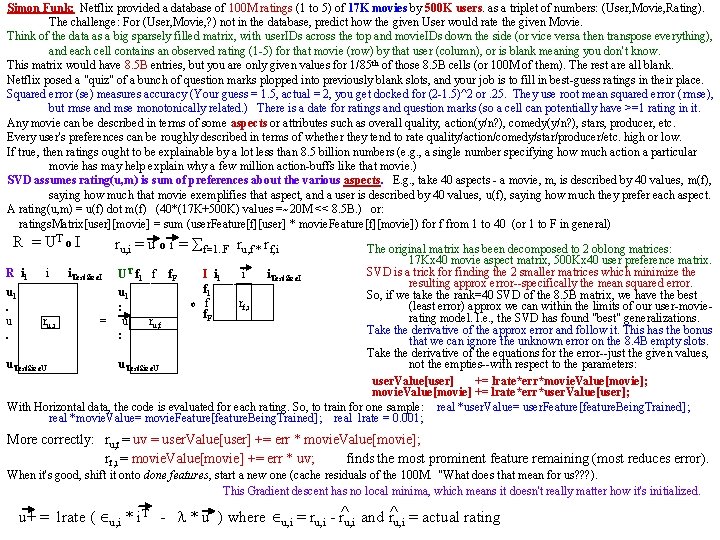 Simon Funk: Netflix provided a database of 100M ratings (1 to 5) of 17K movies by 500K users. as a triplet of numbers: (User,Movie,Rating).
The challenge: For (User,Movie,?) not in the database, predict how the given User would rate the given Movie.
Think of the data as a big sparsely filled matrix, with userIDs across the top and movieIDs down the side (or vice versa then transpose everything),
and each cell contains an observed rating (1-5) for that movie (row) by that user (column), or is blank meaning you don't know.
This matrix would have 8.5B entries, but you are only given values for 1/85th of those 8.5B cells (or 100M of them). The rest are all blank.
Netflix posed a "quiz" of a bunch of question marks plopped into previously blank slots, and your job is to fill in best-guess ratings in their place.
Squared error (se) measures accuracy (Your guess = 1.5, actual = 2, you get docked for (2-1.5)^2 or .25. They use root mean squared error (rmse),
but rmse and mse monotonically related.) There is a date for ratings and question marks (so a cell can potentially have >=1 rating in it.
Any movie can be described in terms of some aspects or attributes such as overall quality, action(y/n?), comedy(y/n?), stars, producer, etc.
Every user's preferences can be roughly described in terms of whether they tend to rate quality/action/comedy/star/producer/etc. high or low.
If true, then ratings ought to be explainable by a lot less than 8.5 billion numbers (e.g., a single number specifying how much action a particular
movie has may help explain why a few million action-buffs like that movie.)
SVD assumes rating(u,m) is sum of preferences about the various aspects. E.g., take 40 aspects - a movie, m, is described by 40 values, m(f),
saying how much that movie exemplifies that aspect, and a user is described by 40 values, u(f), saying how much they prefer each aspect.
A rating(u,m) = u(f) dot m(f) (40*(17K+500K) values =~20M << 8.5B.) or:
ratingsMatrix[user][movie] = sum (userFeature[f][user] * movieFeature[f][movie]) for f from 1 to 40 (or 1 to F in general)
R = UT o I ru,i = u o i = ∑f=1..F ru,f * rf,i
R i1 i iTestSizeI UT f1 f fF I i1 i iTestSizeI
u1 u1 f1
. : f rf,i
u ru,i = u ru,f o fF
. :
uTestSizeU uTestSizeU
The original matrix has been decomposed to 2 oblong matrices:
17Kx40 movie aspect matrix, 500Kx40 user preference matrix.
SVD is a trick for finding the 2 smaller matrices which minimize the
resulting approx error--specifically the mean squared error.
So, if we take the rank=40 SVD of the 8.5B matrix, we have the best
(least error) approx we can within the limits of our user-movie-
rating model. I.e., the SVD has found "best" generalizations.
Take the derivative of the approx error and follow it. This has the bonus
that we can ignore the unknown error on the 8.4B empty slots.
Take the derivative of the equations for the error--just the given values,
not the empties--with respect to the parameters:
userValue[user] += lrate*err*movieValue[movie];
movieValue[movie] += lrate*err*userValue[user];
With Horizontal data, the code is evaluated for each rating. So, to train for one sample: real *userValue= userFeature[featureBeingTrained];
real *movieValue= movieFeature[featureBeingTrained]; real lrate = 0.001;
More correctly: ru,f = uv = userValue[user] += err * movieValue[movie];
rf,i = movieValue[movie] += err * uv; finds the most prominent feature remaining (most reduces error).
When it's good, shift it onto done features, start a new one (cache residuals of the 100M. "What does that mean for us???).
This Gradient descent has no local minima, which means it doesn't really matter how it's initialized.
u+ = lrate ( ∈u,i * iT - λ * u ) where ∈u,i = ru,i - r̂u,i and r̂u,i = actual rating